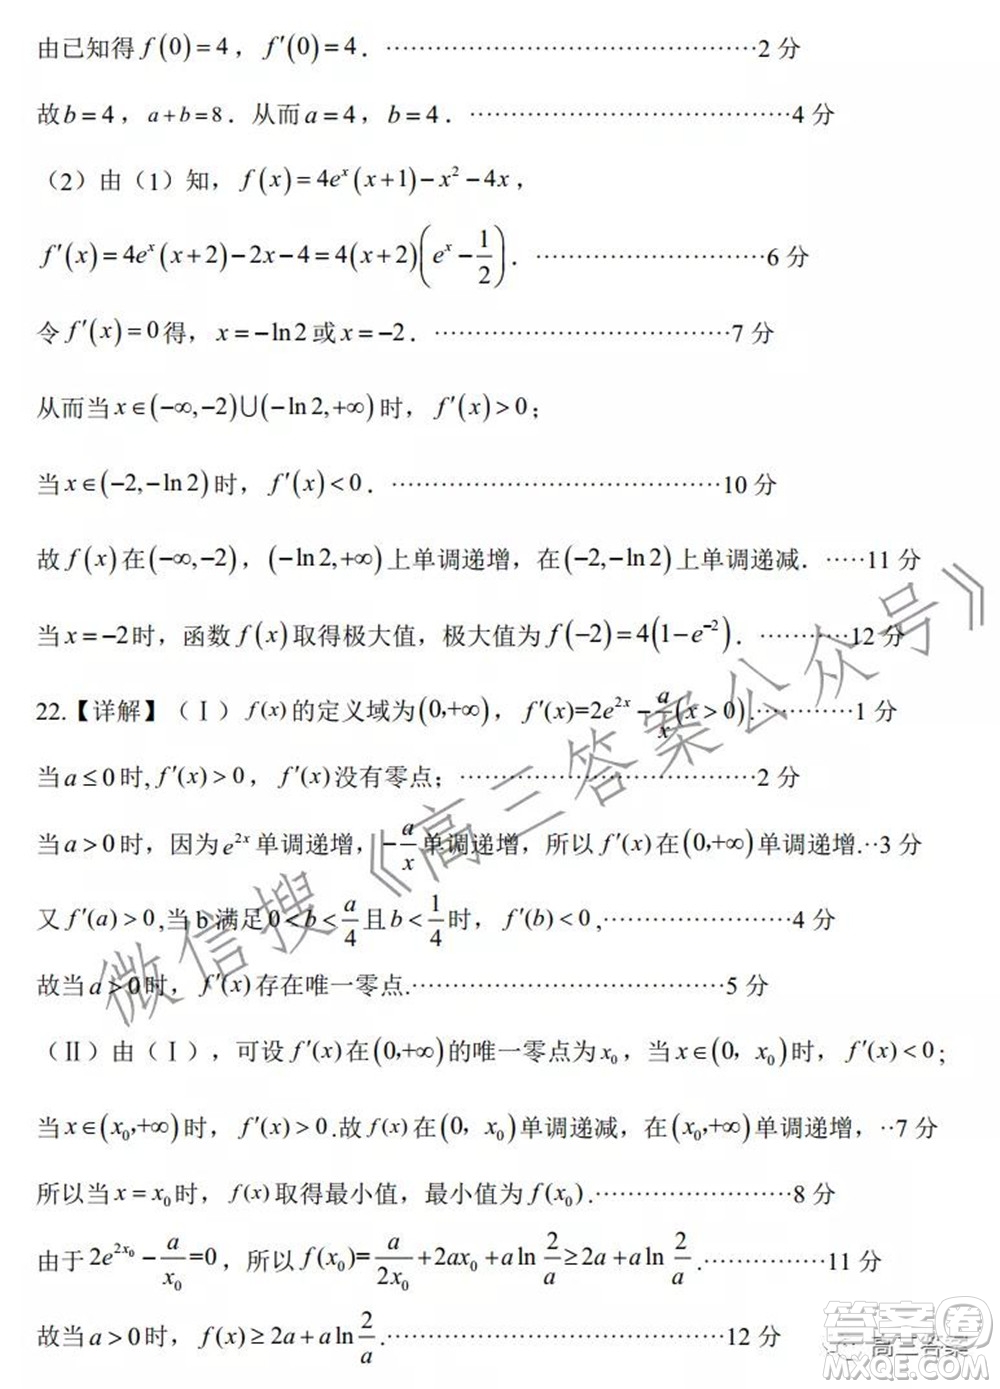 由已知得 f(0)=4，f′(0)=4．⋯⋯⋯⋯⋯⋯⋯⋯⋯⋯⋯⋯2 分
故 b=4，a+b=8．从而 a=4，b=4．⋯⋯⋯⋯⋯⋯⋯⋯⋯⋯⋯4 分
（2）由（1）知，f(x)=4eˣ(x+1)−x²−4x，
f′(x)=4eˣ(x+2)−2x−4=4(x+2)(eˣ−1/2)．⋯⋯⋯⋯⋯⋯⋯⋯6 分
令 f′(x)=0 得，x=−ln2 或 x=−2．⋯⋯⋯⋯⋯⋯⋯⋯⋯⋯7 分
从而当 x∈(−∞,−2)∪(−ln2,+∞) 时，f′(x)>0；
当 x∈(−2,−ln2) 时，f′(x)<0．⋯⋯⋯⋯⋯⋯⋯⋯⋯⋯⋯10 分
故 f(x) 在 (−∞,−2)，(−ln2,+∞) 上单调递增，在 (−2,−ln2) 上单调递减．⋯⋯11 分
当 x=−2 时，函数 f(x) 取得极大值，极大值为 f(−2)=4(1−e⁻²)．⋯⋯⋯⋯12 分
22.【详解】（Ⅰ）f(x) 的定义域为 (0,+∞)，f′(x)=2e²ˣ−a/x(x>0).⋯⋯⋯⋯1 分
当 a≤0 时, f′(x)>0，f′(x) 没有零点；⋯⋯⋯⋯⋯⋯⋯⋯⋯⋯2 分
当 a>0 时，因为 e²ˣ 单调递增，−a/x 单调递增，所以 f′(x) 在 (0,+∞) 单调递增.⋯3 分
又 f′(a)>0,当 b 满足 0<b<a/4 且 b<1/4 时，f′(b)<0,⋯⋯⋯⋯⋯⋯4 分
故当 a>0 时，f′(x) 存在唯一零点.⋯⋯⋯⋯⋯⋯⋯⋯⋯⋯5 分
（Ⅱ）由（Ⅰ），可设 f′(x) 在 (0,+∞) 的唯一零点为 x₀，当 x∈(0，x₀) 时，f′(x)<0；
当 x∈(x₀,+∞) 时，f′(x)>0.故 f(x) 在 (0，x₀) 单调递减，在 (x₀,+∞) 单调递增，⋯7 分
所以当 x=x₀ 时，f(x) 取得最小值，最小值为 f(x₀).⋯⋯⋯⋯⋯⋯8 分
由于 2e^(2x₀)−a/x₀=0，所以 f(x₀)=a/(2x₀)+2ax₀+a ln 2/a≥2a+a ln 2/a.⋯⋯⋯⋯11 分
故当 a>0 时，f(x)≥2a+a ln 2/a.⋯⋯⋯⋯⋯⋯⋯⋯⋯⋯⋯12 分
微信搜《高三答案公众号》
答案圈
高三答案
MXQE.COM